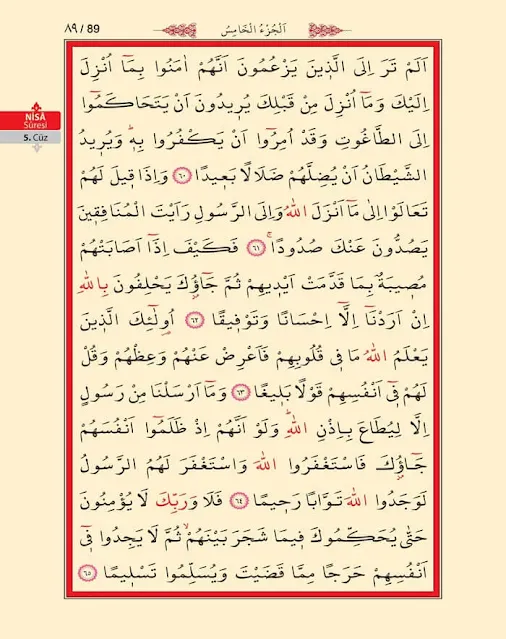 89 / ٨٩
اَلْجُزْءُ الْخَامِسُ
NİSÂ
Sûresi
5. Cüz
اَلَمْ تَرَ اِلَى الَّذ۪ينَ يَزْعُمُونَ اَنَّهُمْ اٰمَنُوا بِمَٓا اُنْزِلَ
اِلَيْكَ وَمَٓا اُنْزِلَ مِنْ قَبْلِكَ يُر۪يدُونَ اَنْ يَتَحَاكَمُٓوا
اِلَى الطَّاغُوتِ وَقَدْ اُمِرُٓوا اَنْ يَكْفُرُوا بِه۪ۜ وَيُر۪يدُ
الشَّيْطَانُ اَنْ يُضِلَّهُمْ ضَلَالًا بَع۪يدًا ٦٠ وَاِذَا ق۪يلَ لَهُمْ
تَعَالَوْا اِلٰى مَٓا اَنْزَلَ اللّٰهُ وَاِلَى الرَّسُولِ رَاَيْتَ الْمُنَافِق۪ينَ
يَصُدُّونَ عَنْكَ صُدُودًاۚ ٦١ فَكَيْفَ اِذَٓا اَصَابَتْهُمْ
مُص۪يبَةٌ بِمَا قَدَّمَتْ اَيْد۪يهِمْ ثُمَّ جَٓاؤُ۫كَ يَحْلِفُونَ بِاللّٰهِ
اِنْ اَرَدْنَٓا اِلَّٓا اِحْسَانًا وَتَوْف۪يقًا ٦٢ اُو۬لٰٓئِكَ الَّذ۪ينَ
يَعْلَمُ اللّٰهُ مَا ف۪ي قُلُوبِهِمْ فَاَعْرِضْ عَنْهُمْ وَعِظْهُمْ وَقُلْ
لَهُمْ ف۪ٓي اَنْفُسِهِمْ قَوْلًا بَل۪يغًا ٦٣ وَمَٓا اَرْسَلْنَا مِنْ رَسُولٍ
اِلَّا لِيُطَاعَ بِاِذْنِ اللّٰهِۜ وَلَوْ اَنَّهُمْ اِذْ ظَلَمُٓوا اَنْفُسَهُمْ
جَٓاؤُ۫كَ فَاسْتَغْفَرُوا اللّٰهَ وَاسْتَغْفَرَ لَهُمُ الرَّسُولُ
لَوَجَدُوا اللّٰهَ تَوَّابًا رَح۪يمًا ٦٤ فَلَا وَرَبِّكَ لَا يُؤْمِنُونَ
حَتّٰى يُحَكِّمُوكَ ف۪يمَا شَجَرَ بَيْنَهُمْۙ ثُمَّ لَا يَجِدُوا ف۪ٓي
اَنْفُسِهِمْ حَرَجًا مِمَّا قَضَيْتَ وَيُسَلِّمُوا تَسْل۪يمًا ٦٥